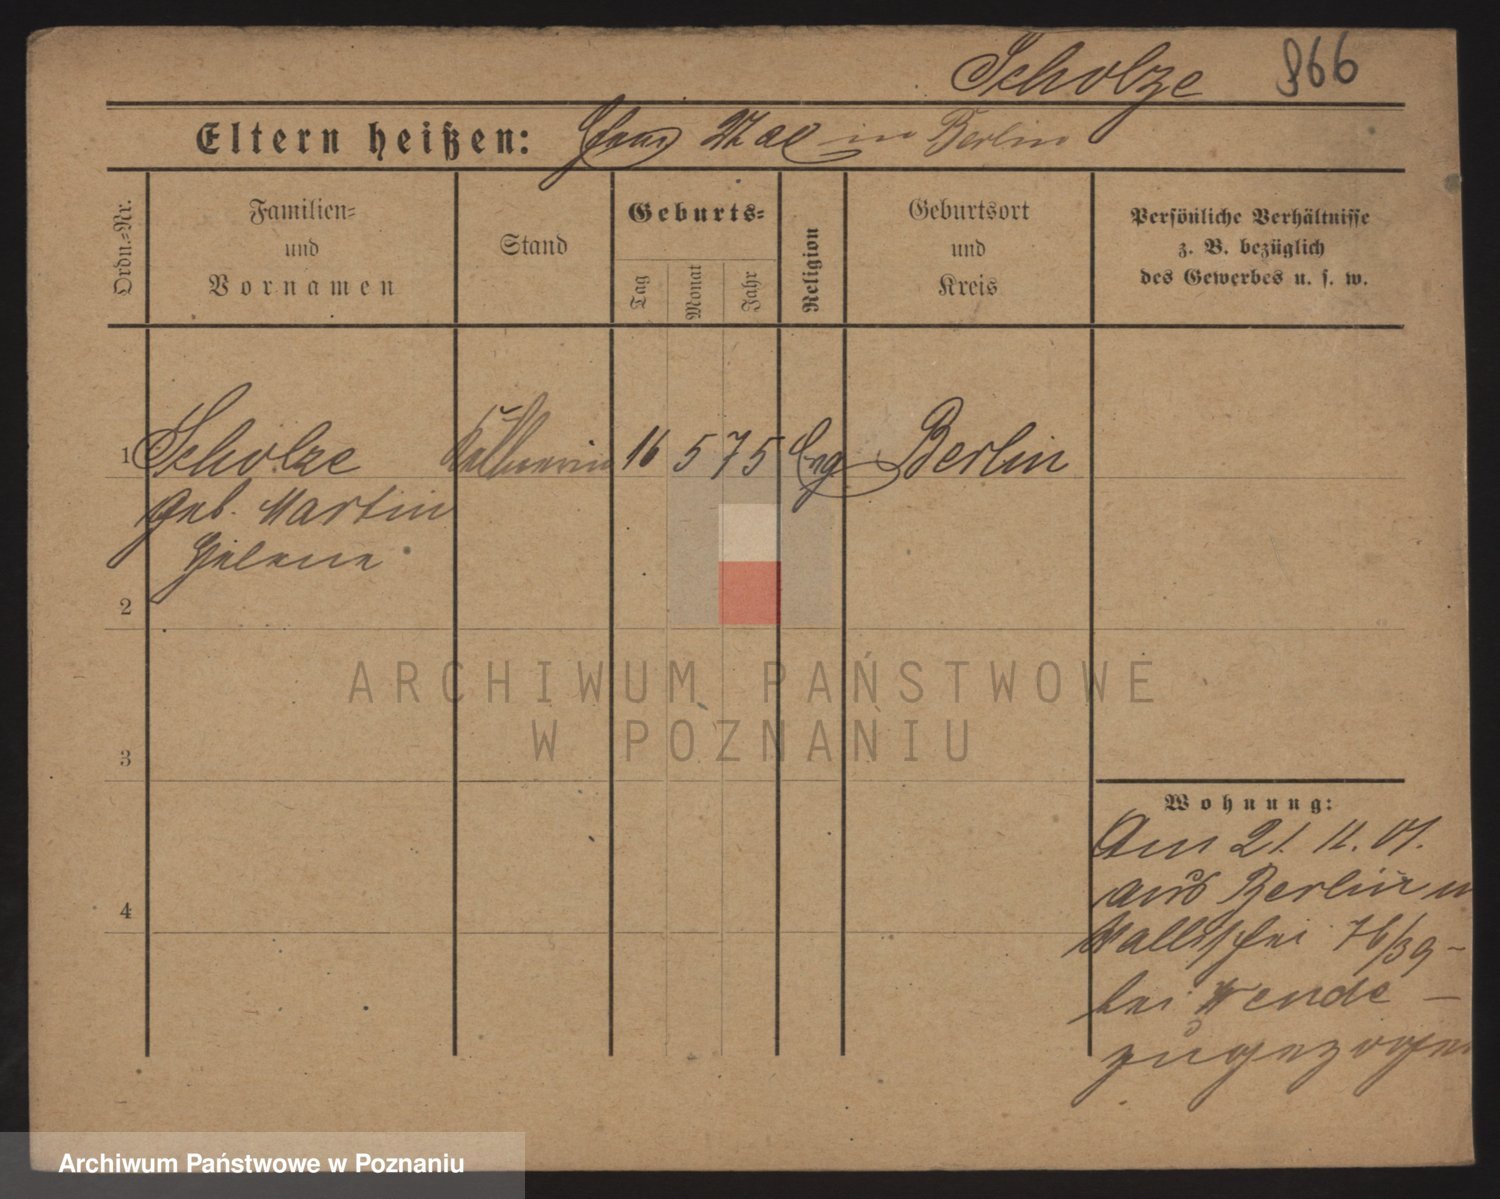 Scholze 866
Eltern heißen: Max in Berlin
Ordn.-Nr.
Familien-
und
Vornamen
Stand
Geburts-
Tag
Monat
Jahr
Religion
Geburtsort
und
Kreis
Persönliche Verhältnisse
z. B. bezüglich
des Gewerbes u. s. w.
1 Scholze 16 5 75 Evg Berlin
geb. Martin
Helene
2
3
4
ARCHIWUM PAŃSTWOWE
W POZNANIU
Wohnung:
Am 21. 11. 01.
aus Berlin n
Wallischei 76/39 -
bei Wende -
zugezogen
Archiwum Państwowe w Poznaniu